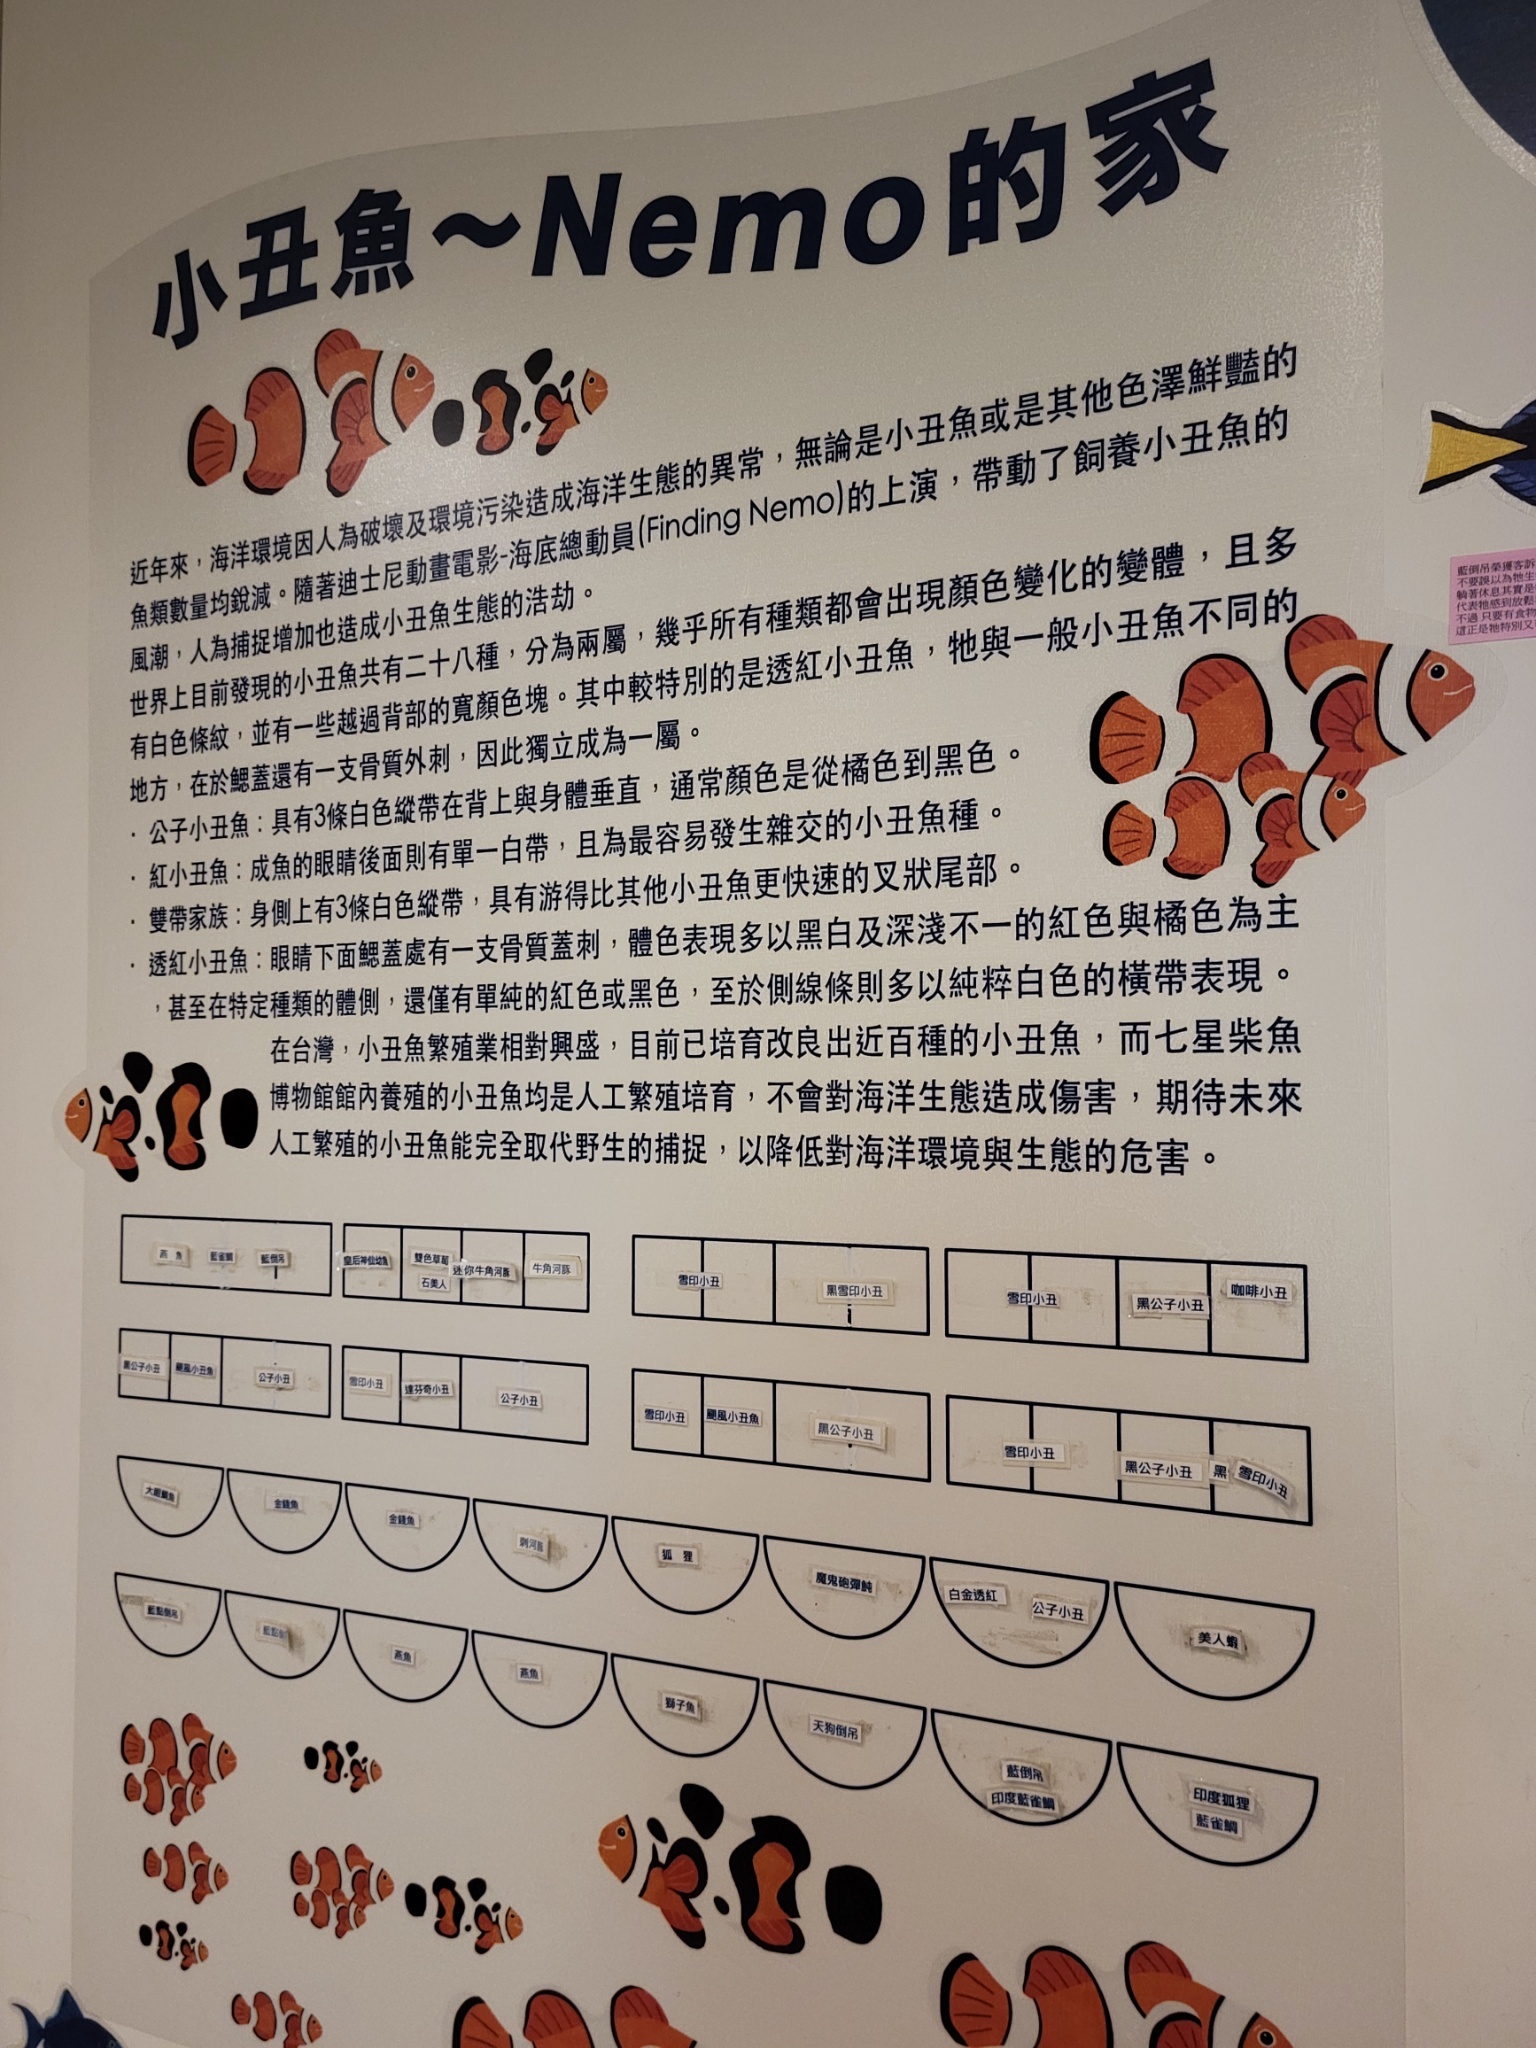 小丑魚～Nemo的家
近年來，海洋環境因人為破壞及環境污染造成海洋生態的異常，無論是小丑魚或是其他色澤鮮豔的
魚類數量均銳減。隨著迪士尼動畫電影-海底總動員(Finding Nemo)的上演，帶動了飼養小丑魚的
風潮，人為捕捉增加也造成小丑魚生態的浩劫。
世界上目前發現的小丑魚共有二十八種，分為兩屬，幾乎所有種類都會出現顏色變化的變體，且多
有白色條紋，並有一些越過背部的寬顏色塊。其中較特別的是透紅小丑魚，牠與一般小丑魚不同的
地方，在於鰓蓋還有一支骨質外刺，因此獨立成為一屬。
．公子小丑魚：具有3條白色縱帶在背上與身體垂直，通常顏色是從橘色到黑色。
．紅小丑魚：成魚的眼睛後面則有單一白帶，且為最容易發生雜交的小丑魚種。
．雙帶家族：身側上有3條白色縱帶，具有游得比其他小丑魚更快速的叉狀尾部。
．透紅小丑魚：眼睛下面鰓蓋處有一支骨質蓋刺，體色表現多以黑白及深淺不一的紅色與橘色為主
，甚至在特定種類的體側，還僅有單純的紅色或黑色，至於側線條則多以純粹白色的橫帶表現。
在台灣，小丑魚繁殖業相對興盛，目前已培育改良出近百種的小丑魚，而七星柴魚
博物館館內養殖的小丑魚均是人工繁殖培育，不會對海洋生態造成傷害，期待未來
人工繁殖的小丑魚能完全取代野生的捕捉，以降低對海洋環境與生態的危害。
燕 魚 藍雀鯛 藍倒吊 皇后神仙幼魚 雙色草莓 石美人 迷你牛角河豚 牛角河豚 雪印小丑 黑雪印小丑 雪印小丑 黑公子小丑 咖啡小丑
黑公子小丑 颶風小丑魚 公子小丑 雪印小丑 達芬奇小丑 公子小丑 雪印小丑 颶風小丑魚 黑公子小丑 雪印小丑 黑公子小丑 黑 雪印小丑
金錢魚 金錢魚 刺河豚 狐 狸 魔鬼砲彈魨 白金透紅 公子小丑 美人蝦
藍點倒吊 燕魚 燕魚 獅子魚 天狗倒吊 藍倒吊 印度狐狸
印度藍雀鯛 藍雀鯛
藍倒吊榮獲客訴
不要誤以為牠生
躺著休息其實是
代表牠感到放鬆
不過 只要有食物
這正是牠特別又